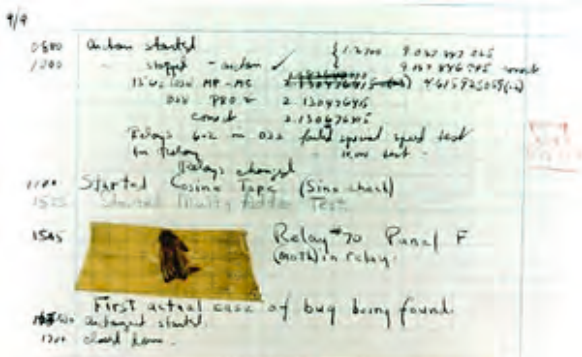 9/9
0800 Antan started
1000 " stopped - antan ✓ { 1.2700 9.037 847 025
9.037 846 795 correct
13"uc (032) MP - MC 2.130476415 4.615925059(-2)
033 PRO 2 2.130476415
correct 2.130676415
Relays 6-2 in 033 failed special speed test
in relay " 11.00 test.
Relays changed
1100 Started Cosine Tape (Sine check)
1525 Started Multy Adder Test.
1545 Relay #70 Panel F
(moth) in relay.
First actual case of bug being found.
antangent started.
1700 closed down.